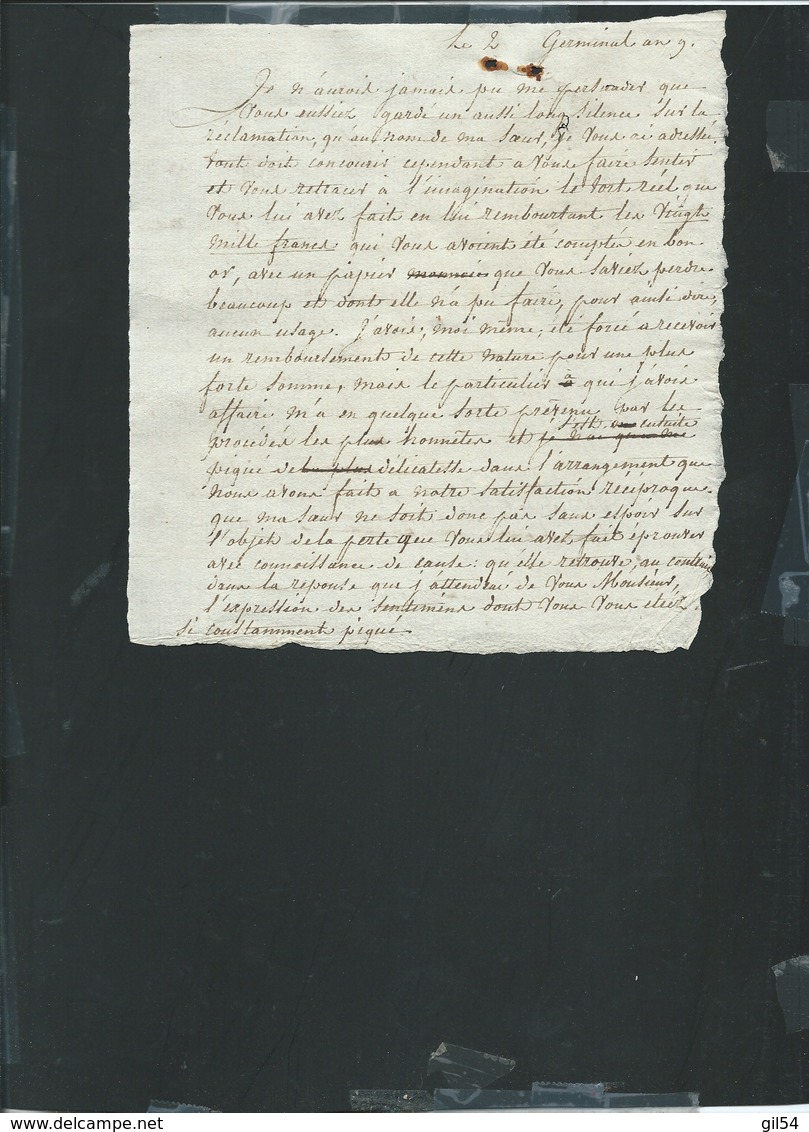 Le 2 Germinal an 9.
Je n'aurois jamais pu me persuader que
vous eussiez gardé un aussi long silence sur la
réclamation, qu'au nom de ma sœur, je vous ai adressée.
tout doit concourir cependant a vous faire sentir
et vous retracer à l'imagination le tort réel que
vous lui avez fait en lui remboursant les vingt
mille francs qui vous avoient été comptés en bon
or, avec un papier monnoie que vous saviez perdre
beaucoup et dont elle n'a pu faire, pour ainsi dire,
aucun usage. J'avois, moi même, été forcé a recevoir
un remboursement de cette nature pour une plus
forte somme, mais le particulier à qui j'avois
affaire m'a en quelque sorte prévenu par les
procédés les plus honnêtes et s'est ensuite
piqué de la plus délicatesse dans l'arrangement que
nous avons fait a notre satisfaction réciproque.
que ma sœur ne soit donc pas sans espoir sur
l'objet de la perte que vous lui avez fait éprouver
avec connoissance de cause: qu'elle retrouve, au contraire
dans la reponse que j'attendrai de vous Monsieur,
l'expression des sentimens dont vous vous etiez
si constamment piqué
gil54